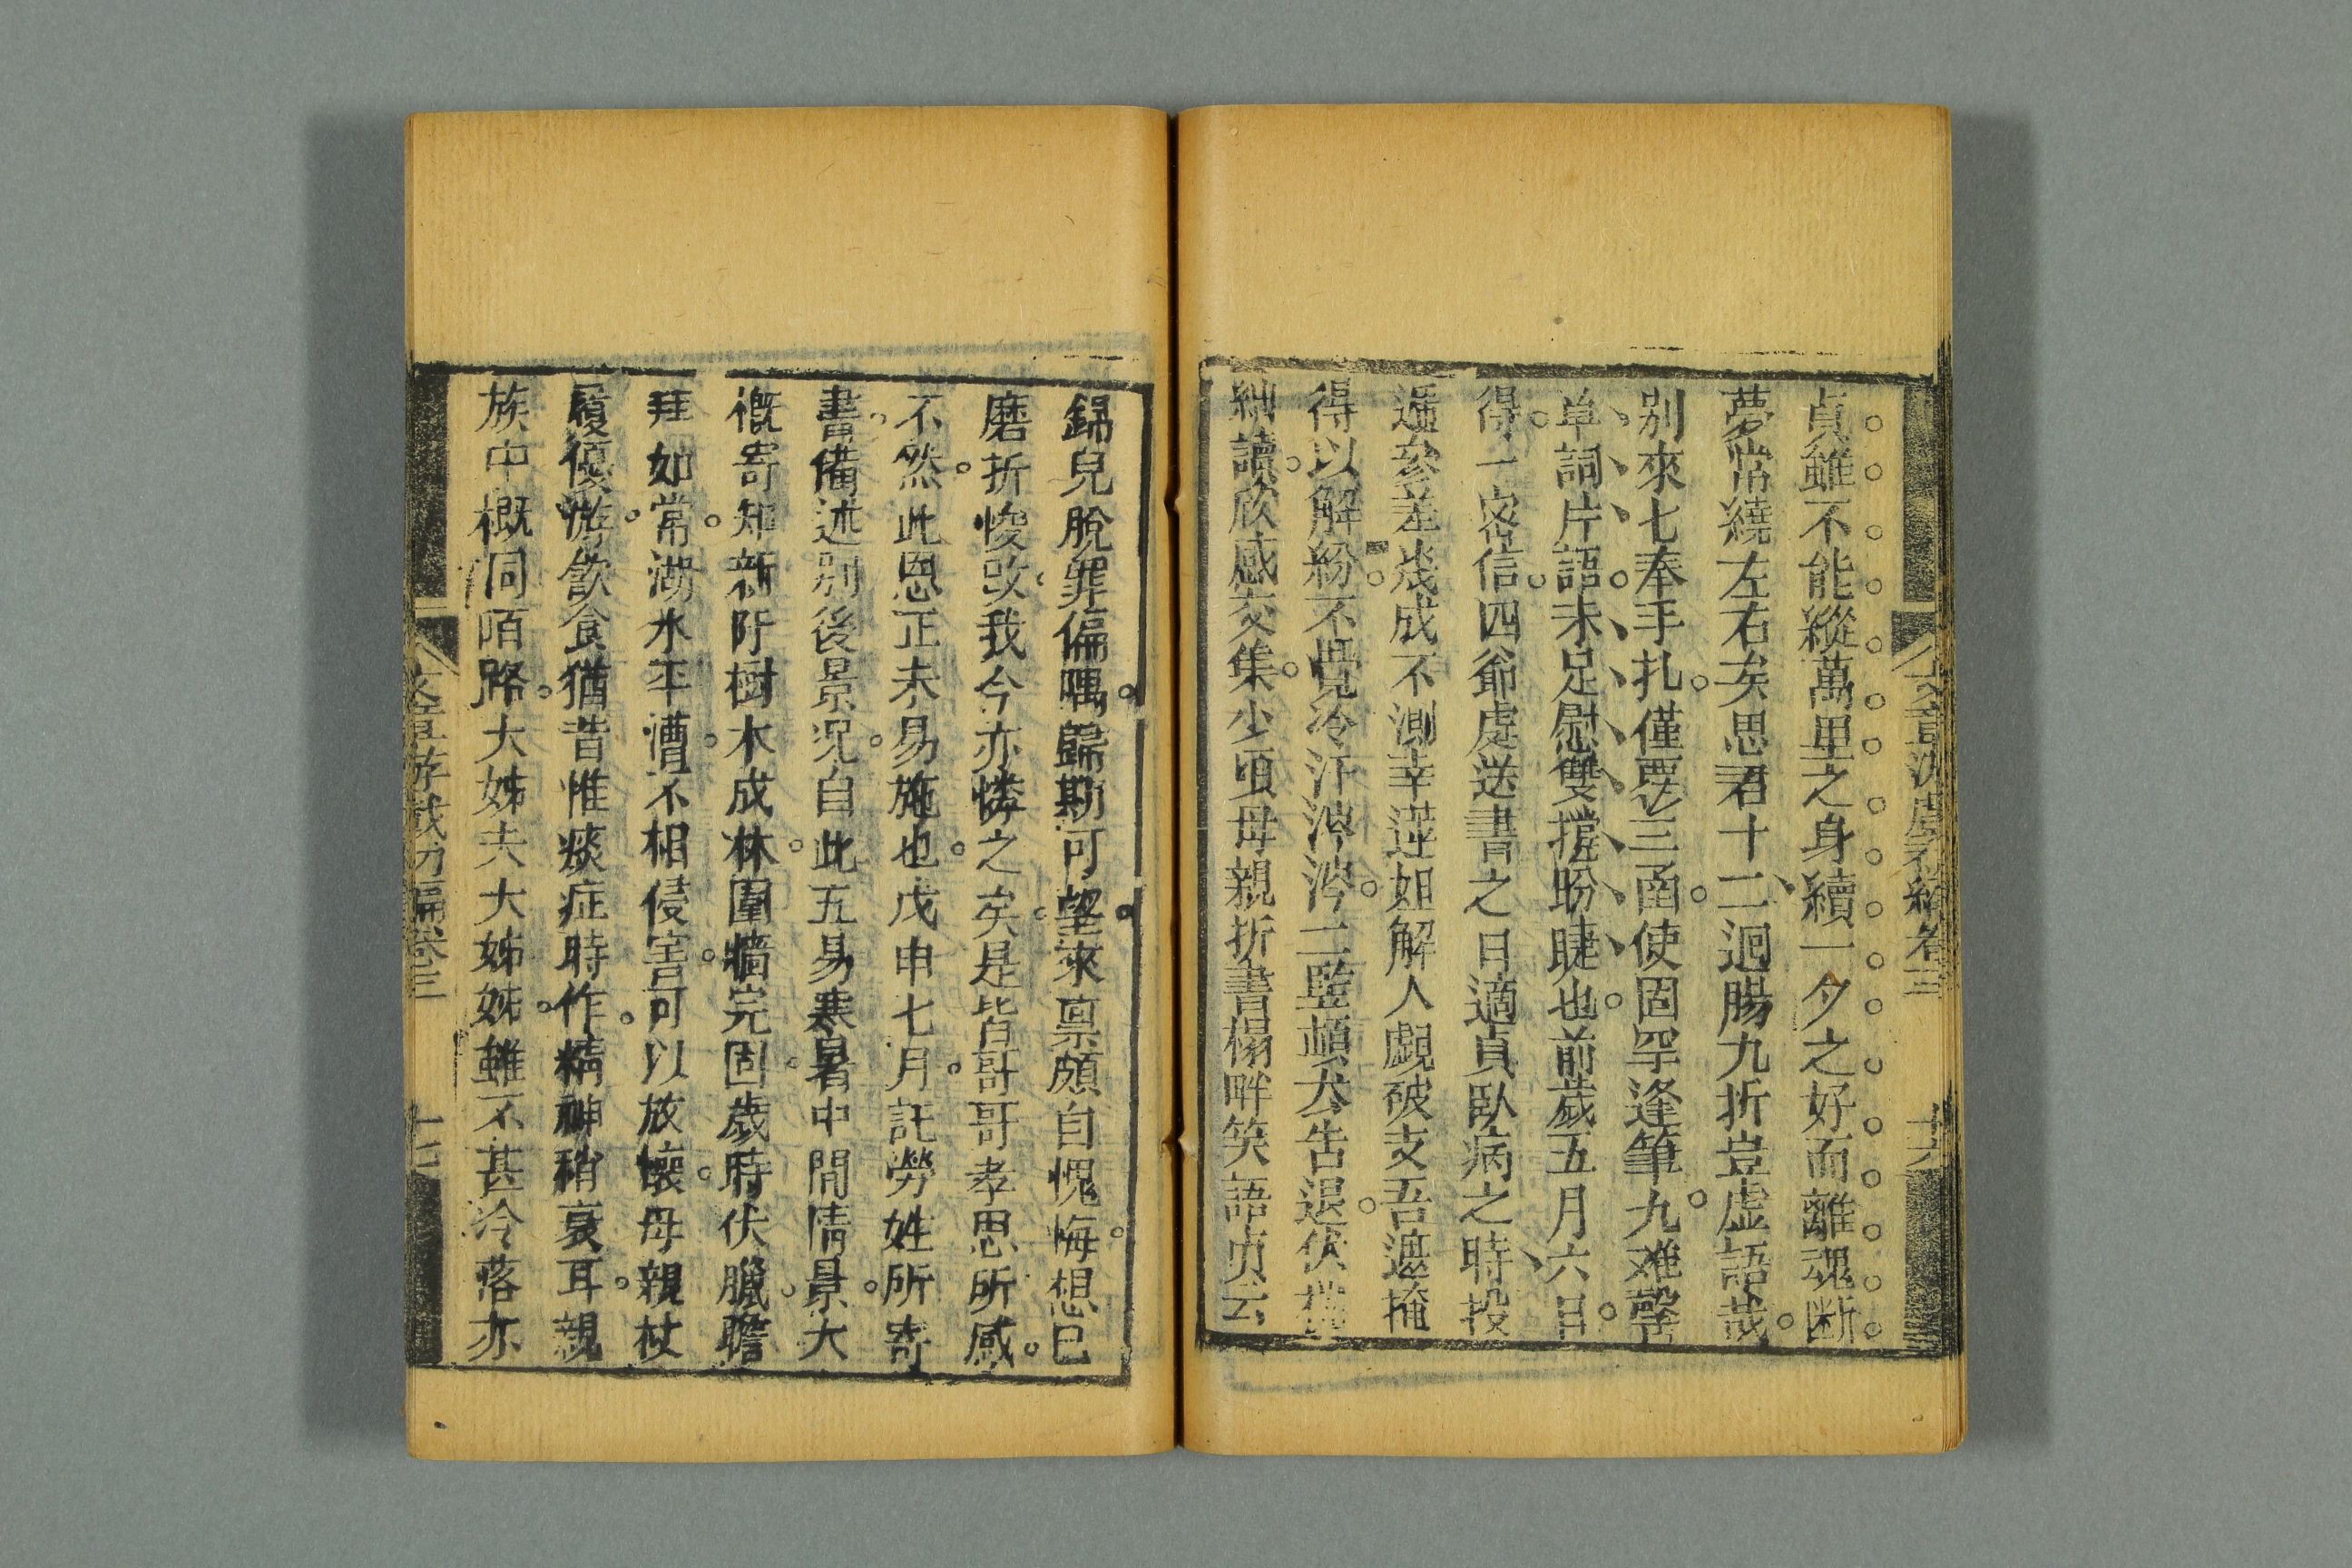 貞雖不能縱萬里之身續一夕之好而離魂斷
夢常繞左右矣思君十二迴腸九折豈虛語哉
別來七奉手扎僅覆三函使固罕逢筆尤难罄
单詞片語未足慰雙撑盼睫也前歲五月六日
得一密信四爺處送書之日適貞臥病之時投
遞參差幾成不測幸蓮姐解人覷破支吾遮掩
得以解紛不覺冷汗涔涔二豎頓去告退伏枕
細讀欣感交集少頃母親折書榻畔笑語貞云
錦兒脫罪偏隅歸期可望來禀頗自愧悔想已
磨折悛改我今亦憐之矣是皆哥哥孝思所感
不然此恩正未易施也戊申七月託勞姓所寄
書備述別後景况自此五易寒暑中間情景大
概寄知新阡樹木成林圍牆完固歲時伏臘瞻
拜如常湖水平漕不相侵害可以放懷母親杖
履優游飲食猶昔惟痰症時作精神稍衰耳親
族中概同陌路大姊夫大姊姊雖不甚冷落亦
文章游戲初編卷三
十七